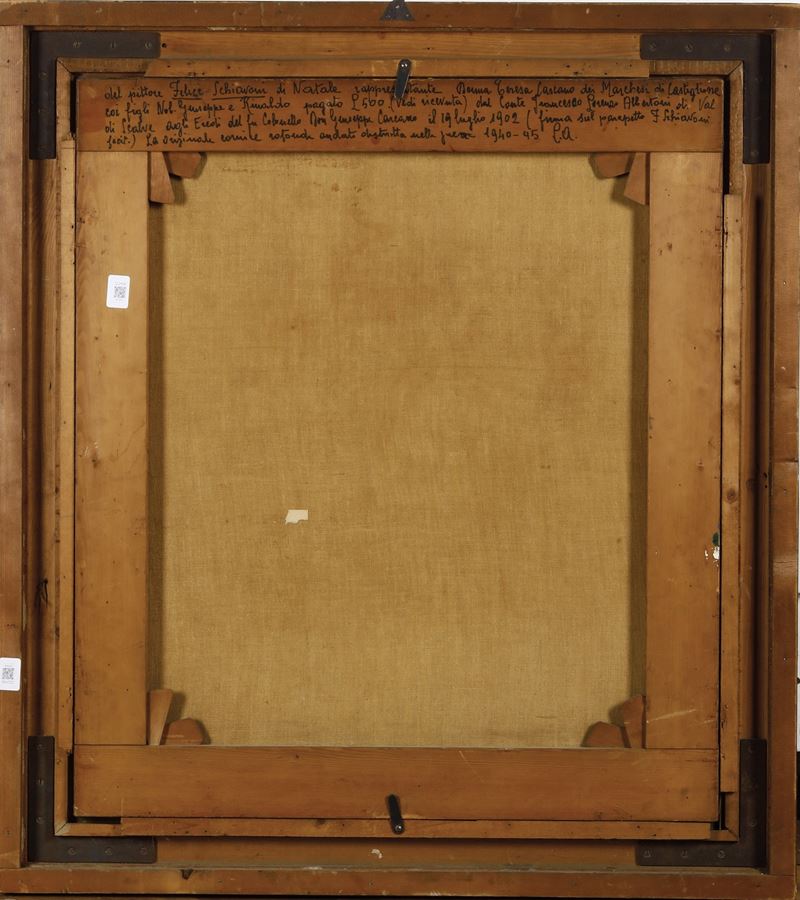 del pittore Felice Schiavoni di Natale rappresentante Donna Teresa Carcano dei Marchesi di Castiglione
coi figli Nob. Giuseppe e Rinaldo pagato £ 500 (vedi ricevuta) dal Conte Francesco Lorenzo Albertoni di Val
di Scalve agli Eredi del fu Colonello Don Giuseppe Carcano il 19 luglio 1902 (firma sul parapetto F. Schiavoni
fecit.) La originale cornice rotonda andata distrutta nella guerra 1940-45 C.A.